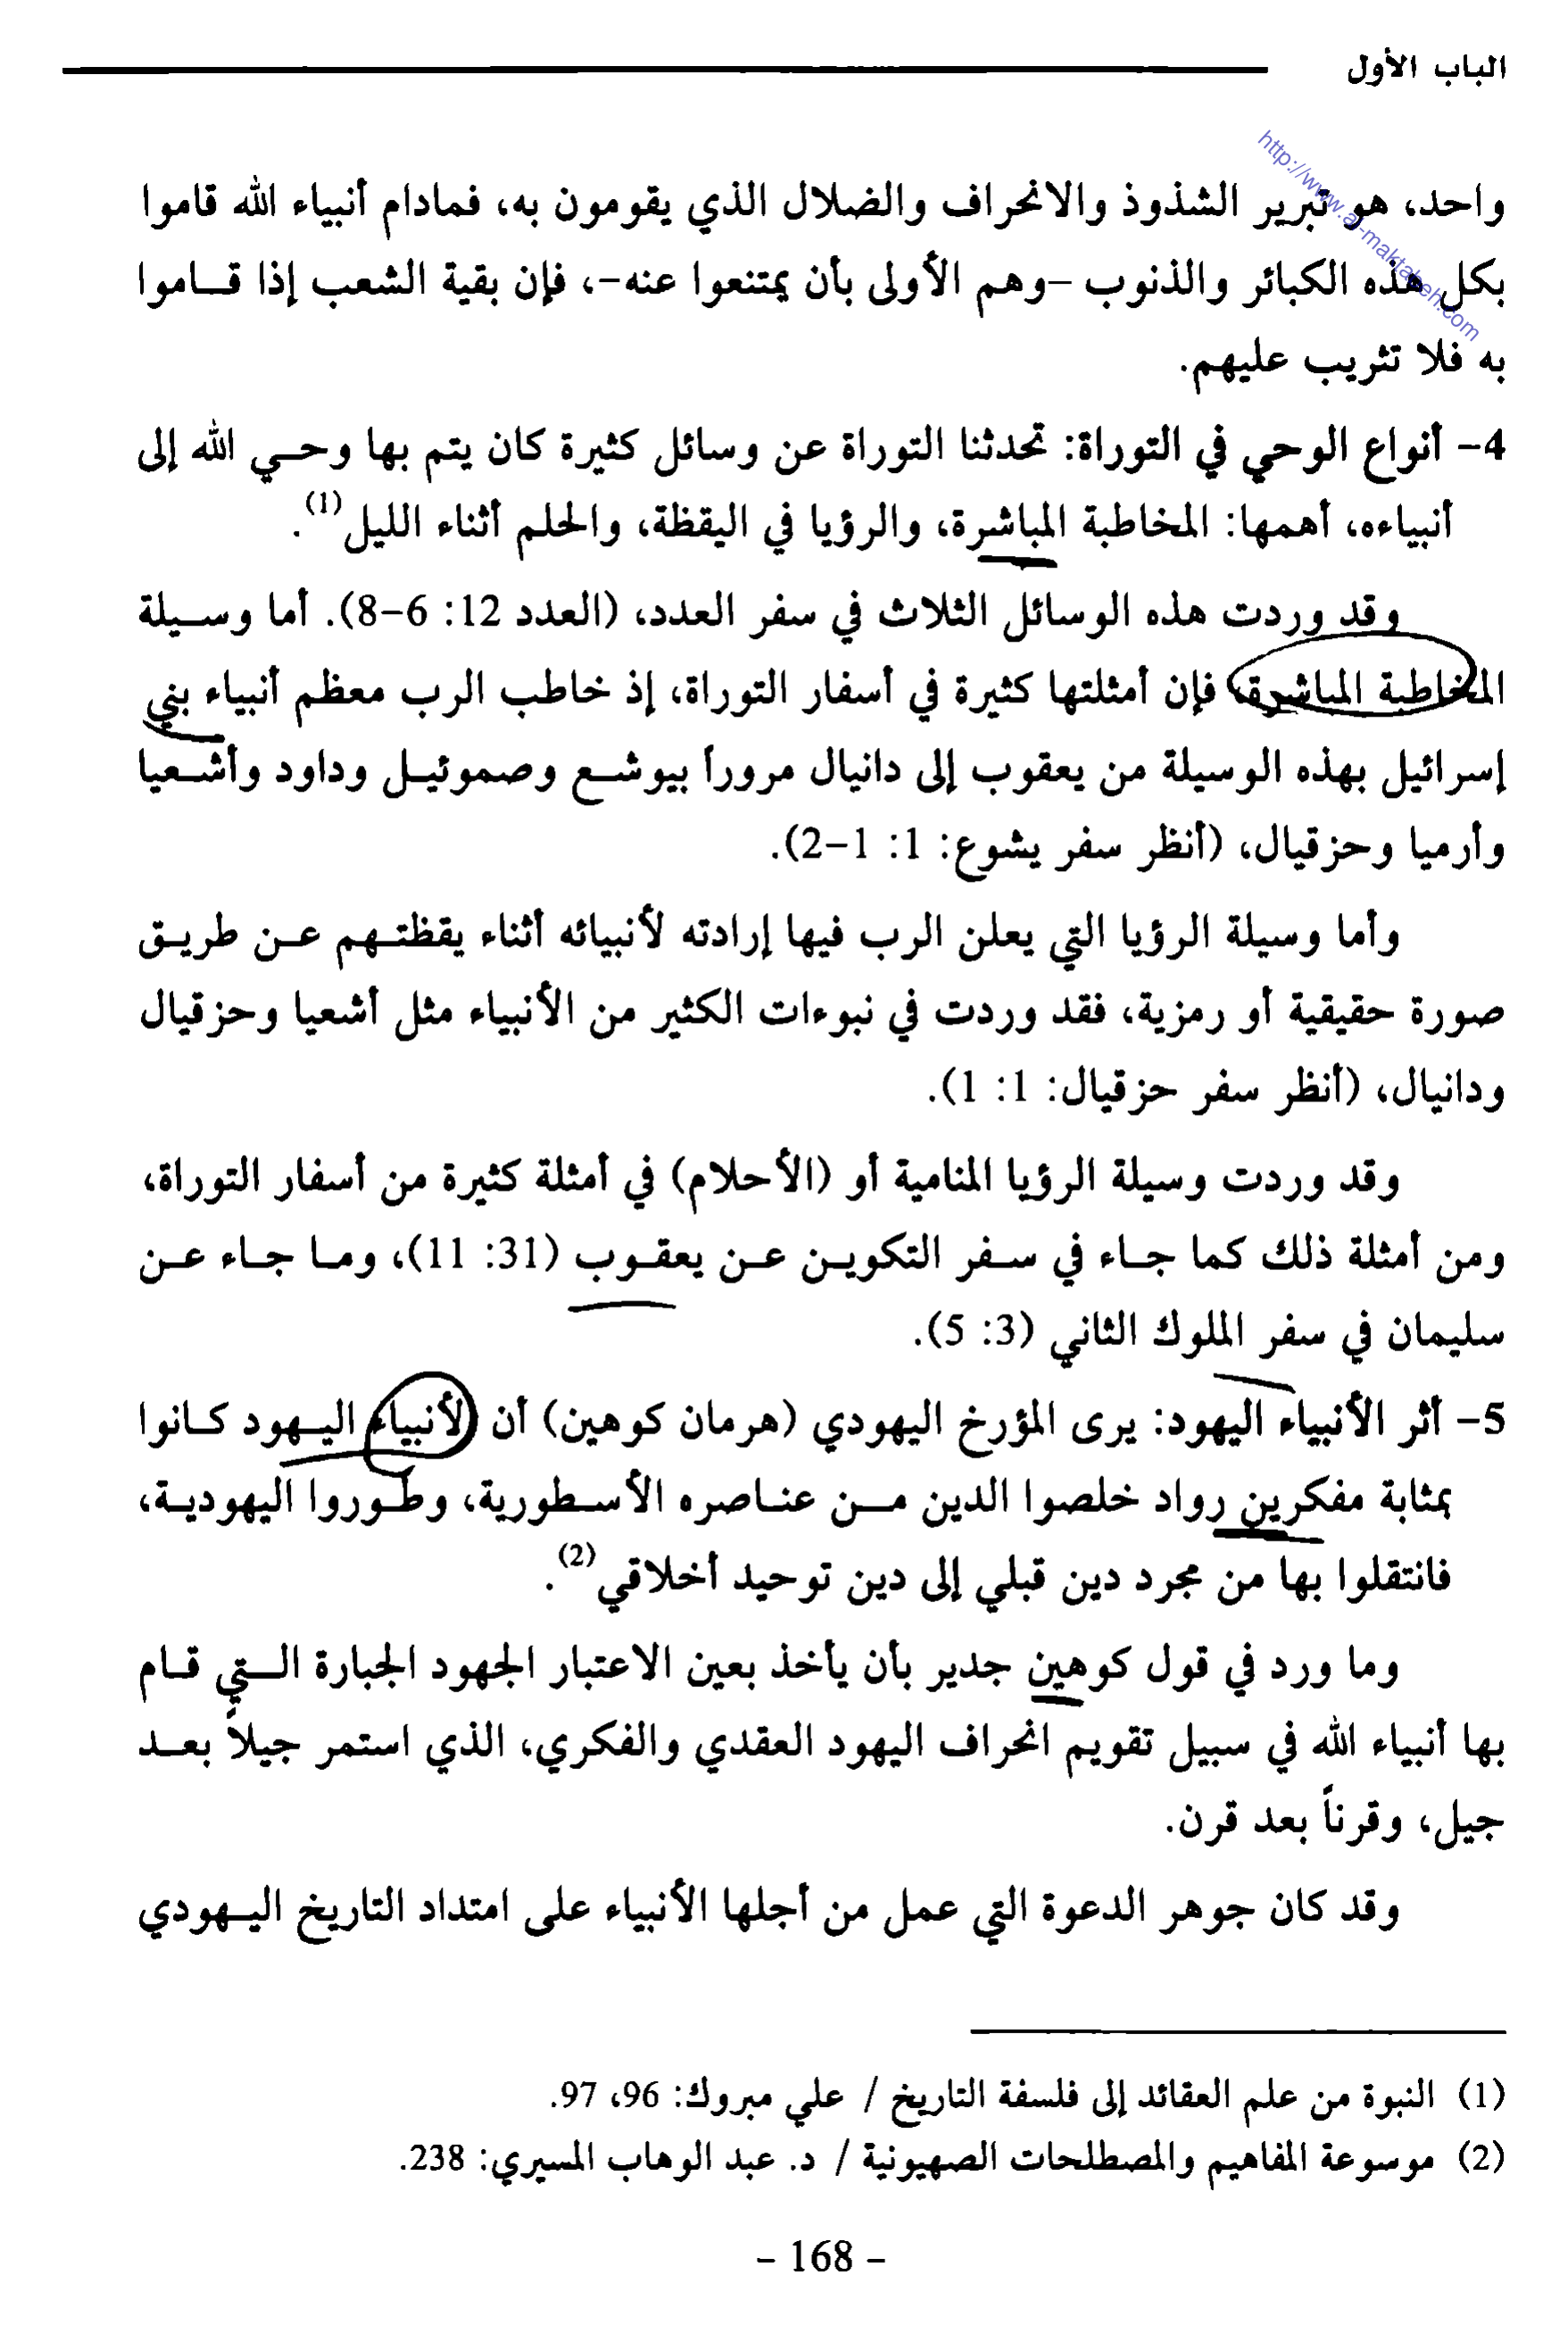 الباب الأول
http://www.al-maktabeh.com
واحد، هو تبرير الشذوذ والانحراف والضلال الذي يقومون به، فمادام أنبياء الله قاموا
بكل هذه الكبائر والذنوب –وهم الأولى بأن يمتنعوا عنه–، فإن بقية الشعب إذا قـاموا
به فلا تثريب عليهم.
4– أنواع الوحي في التوراة: تحدثنا التوراة عن وسائل كثيرة كان يتم بها وحـي الله إلى
أنبياءه، أهمها: المخاطبة المباشرة، والرؤيا في اليقظة، والحلم أثناء الليل(1).
وقد وردت هذه الوسائل الثلاث في سفر العدد، (العدد 12: 6–8). أما وسـيلة
المخاطبة المباشرة، فإن أمثلتها كثيرة في أسفار التوراة، إذ خاطب الرب معظم أنبياء بني
إسرائيل بهذه الوسيلة من يعقوب إلى دانيال مروراً بيوشـع وصموئيـل وداود وأشـعيا
وأرميا وحزقيال، (أنظر سفر يشوع: 1: 1–2).
وأما وسيلة الرؤيا التي يعلن الرب فيها إرادته لأنبيائه أثناء يقظتـهم عـن طريـق
صورة حقيقية أو رمزية، فقد وردت في نبوءات الكثير من الأنبياء مثل أشعيا وحزقيال
ودانيال، (أنظر سفر حزقيال: 1: 1).
وقد وردت وسيلة الرؤيا المنامية أو (الأحلام) في أمثلة كثيرة من أسفار التوراة،
ومن أمثلة ذلك كما جـاء في سـفر التكويـن عـن يعقـوب (31: 11)، ومـا جـاء عـن
سليمان في سفر الملوك الثاني (3: 5).
5– أثر الأنبياء اليهود: يرى المؤرخ اليهودي (هرمان كوهين) أن لأنبياء اليـهود كـانوا
بمثابة مفكرين رواد خلصوا الدين مـن عنـاصره الأسـطورية، وطـوروا اليهوديـة،
فانتقلوا بها من مجرد دين قبلي إلى دين توحيد أخلاقي(2).
وما ورد في قول كوهين جدير بأن يأخذ بعين الاعتبار الجهود الجبارة الـتي قـام
بها أنبياء الله في سبيل تقويم انحراف اليهود العقدي والفكري، الذي استمر جيلاً بعـد
جيل، وقرناً بعد قرن.
وقد كان جوهر الدعوة التي عمل من أجلها الأنبياء على امتداد التاريخ اليـهودي
(1) النبوة من علم العقائد إلى فلسفة التاريخ / علي مبروك: 96، 97.
(2) موسوعة المفاهيم والمصطلحات الصهيونية / د. عبد الوهاب المسيري: 238.
– 168 –